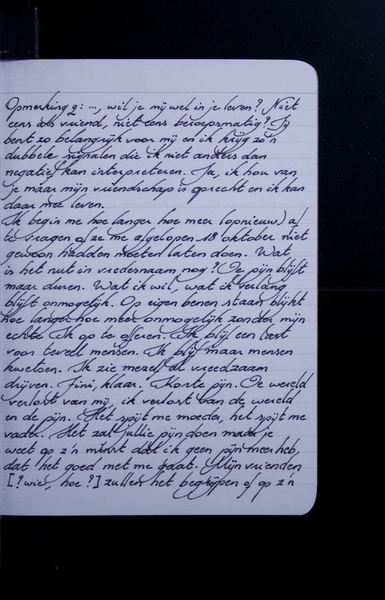 Opmerking 2: ..., wil je mij wel in je leven? Niet
eens als vriend, niet eens beroepsmatig? Jij
bent zo belangrijk voor mij en ik krijg zo'n
dubbele signalen die ik niet anders dan
negatief kan interpreteren. Ja, ik hou van
je maar mijn vriendschap is oprecht en ik kan
daar mee leven.
Ik begin me hoe langer hoe meer (opnieuw) af
te vragen of ze me afgelopen 18 oktober niet
gewoon hadden moeten laten doen. Wat
is het nut in vredesnaam nog? De pijn blijft
maar duren. Wat ik wil, wat ik verlang
blijft onmogelijk. Op eigen benen staan blijkt
hoe langer hoe meer onmogelijk zonder mijn
echte Ik op te offeren. Ik blijf een last
voor teveel mensen. Ik blijf maar mensen
kwetsen. Ik zie mezelf al vreedzaam
drijven. Fini, klaar. Korte pijn. De wereld
verlost van mij, ik verlost van de wereld
en de pijn. Het spijt me moeder, het spijt me
vader. Het zal jullie pijn doen maar je
weet op z'n minst dat ik geen pijn meer heb,
dat het goed met me gaat. Mijn vrienden
[? wie, hoe ?] zullen het begrijpen of op z'n